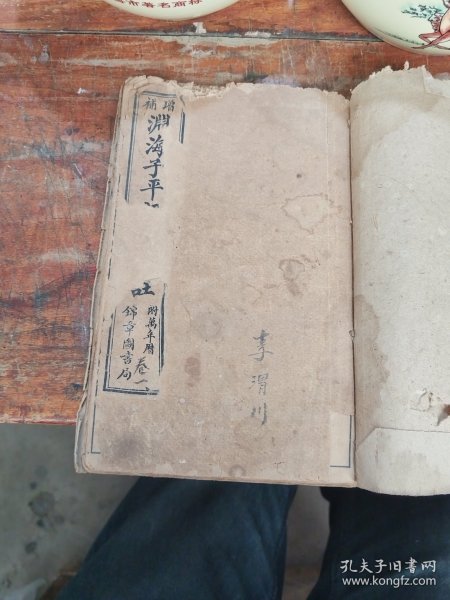 市著名商标
增補
淵海子平
吐
附萬年曆
卷一
錦章圖書局
李渭川
孔夫子旧书网
www.kongfz.com